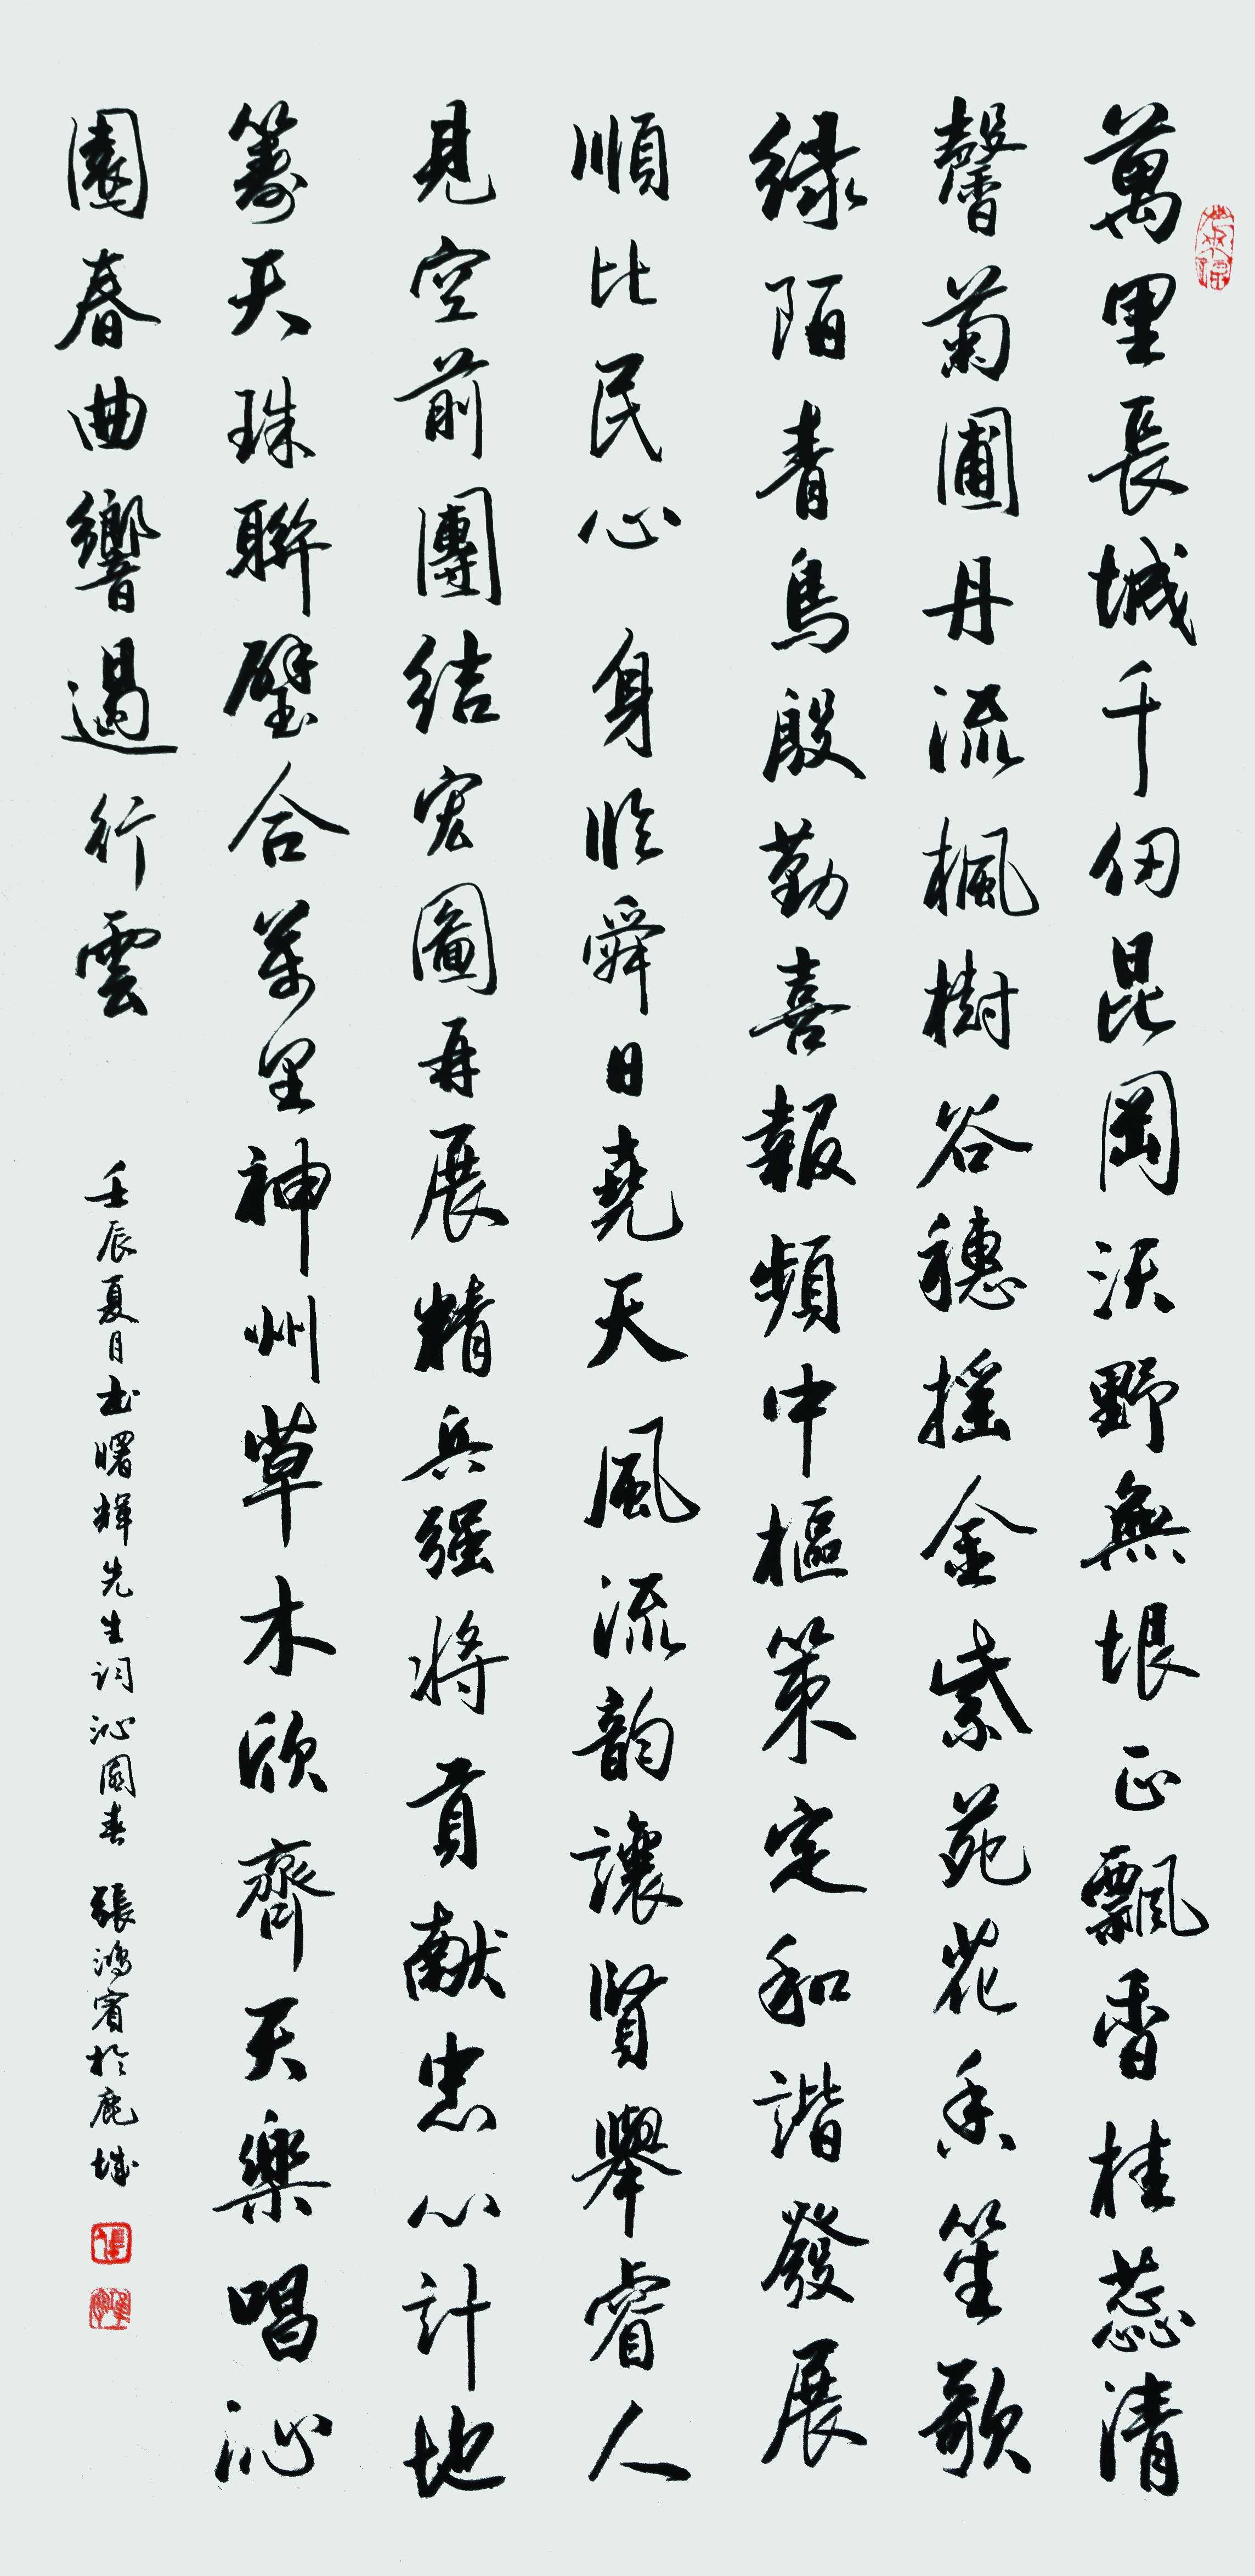 萬里長城千仞昆岡沃野無垠正飄香桂蕊清
馨菊圃丹流楓樹谷穗摇金紫苑花香笙歌
綠陌青鳥殷勤喜報頻中樞策定和諧發展
順比民心身临舜日堯天風流韵讓賢舉睿人
見空前團結宏圖再展精兵强將貢獻忠心計地
籌天珠聯璧合萬里神州草木欣齊天樂唱沁
園春曲響遏行雲
壬辰夏月书曙輝先生词沁園春 張鴻賓於鹿城